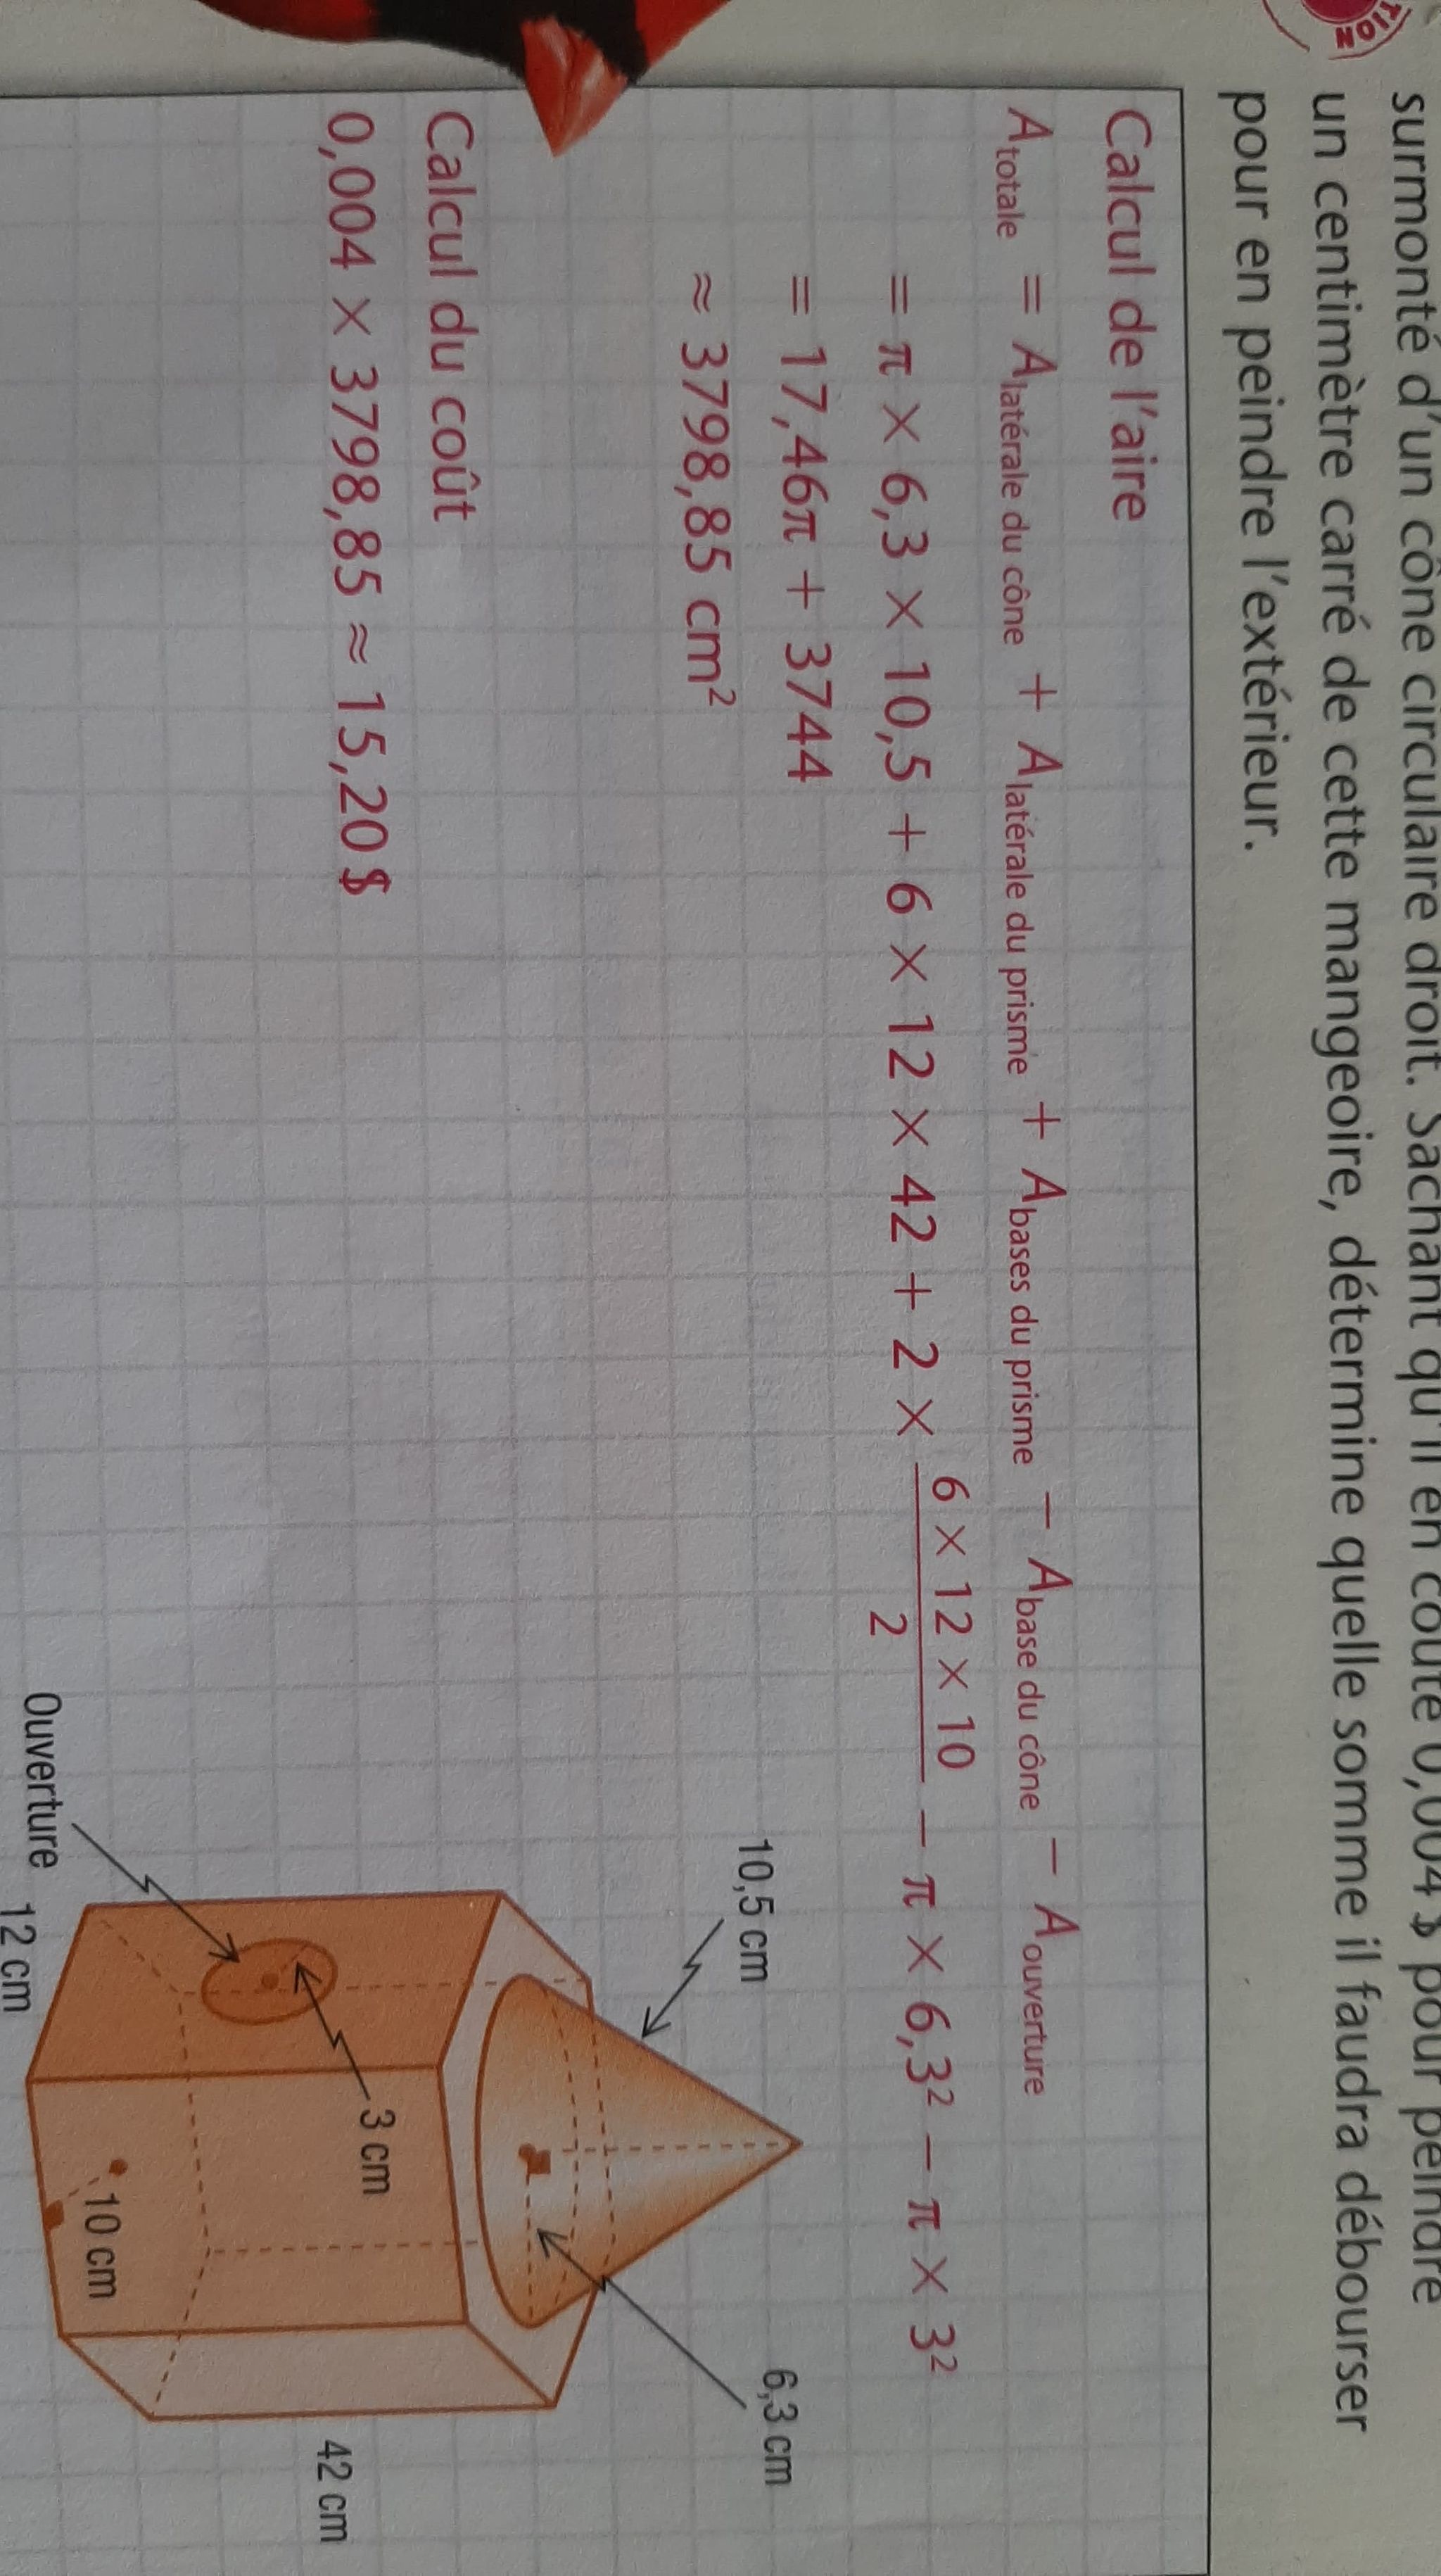 TION
surmonté d'un cône circulaire droit. Sachant qu'il en coûte 0,004 $ pour peindre
un centimètre carré de cette mangeoire, détermine quelle somme il faudra débourser
pour en peindre l'extérieur.
Calcul de l'aire
A_totale = A_latérale du cône + A_latérale du prisme + A_bases du prisme − A_base du cône − A_ouverture
= π × 6,3 × 10,5 + 6 × 12 × 42 + 2 × (6 × 12 × 10)/2 − π × 6,3² − π × 3²
= 17,46π + 3744
≈ 3798,85 cm²
Calcul du coût
0,004 × 3798,85 ≈ 15,20 $
10,5 cm
6,3 cm
3 cm
42 cm
10 cm
Ouverture
12 cm